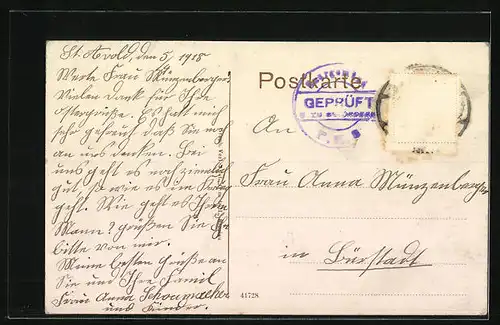 St. Avold, den 5/4 1915
Werte Frau Münzenberger
Vielen Dank für Ihre
Ostergrüße. Es hat mich
sehr gefreut daß Sie noch
an uns denken. Bei
uns geht es noch ziemlich
gut, so wie es im Krieg
geht. Wie geht es Ihrem
Mann? grüßen Sie ihn
bitte von mir.
Meine besten Grüße an
Sie und Ihre Famil
Frau Anna Schoumacher
und Kinder.
Postkarte
GEPRÜFT
An
Frau Anna Münzenberger
in Bürstadt
41728